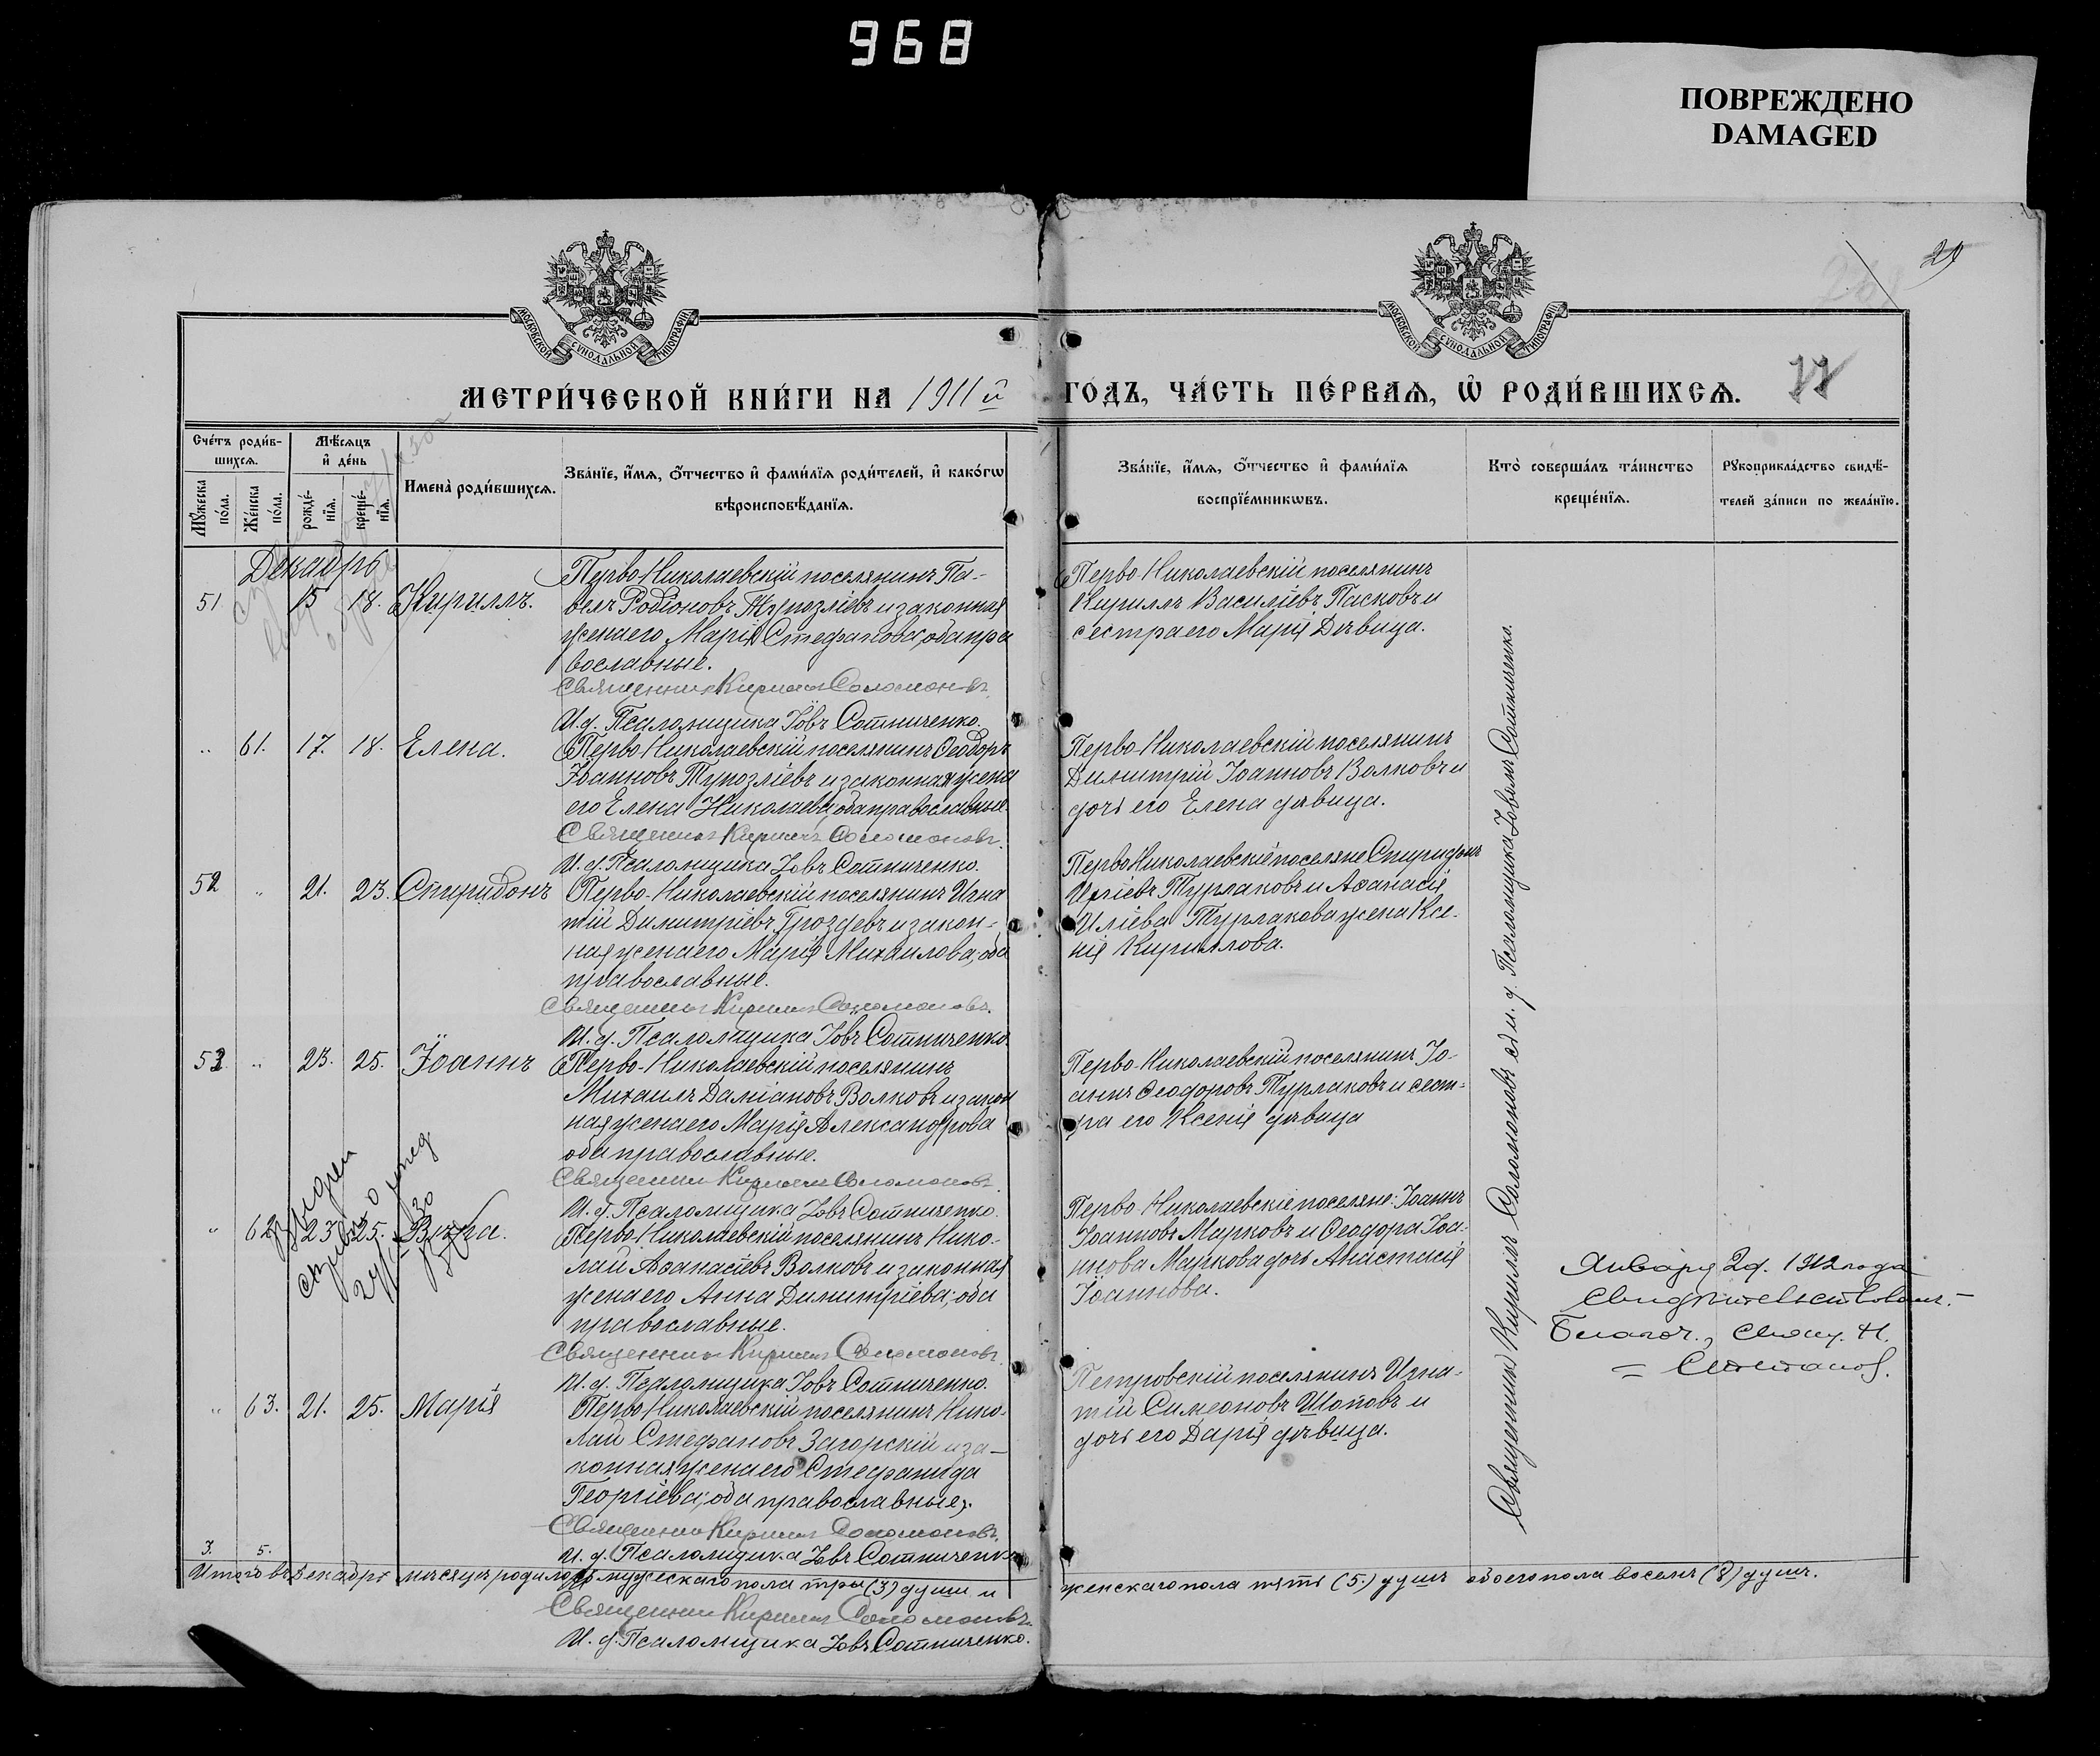 968
ПОВРЕЖДЕНО
DAMAGED
29
МОСКОВСКОЙ СѴНОДАЛЬНОЙ ТИПОГРАФІИ
МОСКОВСКОЙ СѴНОДАЛЬНОЙ ТИПОГРАФІИ
МЕТРИ́ЧЕСКОЙ КНИ́ГИ НА 1911й
ГО́ДЪ, ЧА́СТЬ ПЕ́РВАѦ, Ѡ҆ РОДИ́ВШИХСѦ.
Сче́тъ роди́в-
шихсѧ.
Мѣ́сѧцъ
и҆ де́нь
Мꙋ́жеска
по́ла.
Же́нска
по́ла.
рожде́-
нїѧ.
креще́-
нїѧ.
Имена̀ роди́вшихсѧ.
Зва́нїе, и҆́мѧ, ѻ҆́тчество и҆ фами́лїѧ роди́телей, и҆ како́гѡ
вѣроисповѣ́данїѧ.
Зва́нїе, и҆́мѧ, ѻ҆́тчество и҆ фами́лїѧ
воспрїе́мникѡвъ.
Кто̀ соверша́лъ та́инство
креще́нїѧ.
Рꙋкоприкла́дство свидѣ́-
телей за́писи по жела́нїю.
Декабрь
51 15 18. Кириллъ.
Перво Николаевскій поселянинъ Па-
велъ Родіоновъ Тукозліевъ и законная
жена его Марія Стефанова, оба пра
вославные.
Священникъ Кириллъ Соломоновъ.
И.д. Псаломщика Іовъ Сотниченко.
Перво Николаевскій поселянинъ
Кириллъ Василіевъ Пасковъ и
сестра его Марія Дѣвица.
„ 61. 17. 18. Елена.
Перво Николаевскій поселянинъ Ѳеодоръ
Іоанновъ Тукозліевъ и законная жена
его Елена Николаева, оба православные
Священникъ Кириллъ Соломоновъ.
И.д. Псаломщика Іовъ Сотниченко.
Перво-Николаевскій поселянинъ
Димитрій Іоанновъ Волковъ и
дочь его Елена дѣвица.
52 „ 21. 23. Спиридонъ
Перво-Николаевскій поселянинъ Игна
тій Димитріевъ Гроздевъ и закон-
ная жена его Марія Михаилова, оба
православные.
Священникъ Кириллъ Соломоновъ.
И.д. Псаломщика Іовъ Сотниченко.
Перво Николаевскіе поселяне Спиридонъ
Иліевъ Турлаковъ и Аѳанасія
Иліева Турлакова жена Ксе-
нія Кириллова.
53 „ 23. 25. Іоаннъ
Перво-Николаевскій поселянинъ
Михаилъ Даміановъ Волковъ и закон
ная жена его Марія Александрова
оба православные.
Священникъ Кириллъ Соломоновъ.
И.д. Псаломщика Іовъ Сотниченко.
Перво-Николаевскій поселянинъ Іо-
аннъ Ѳеодоровъ Турлаковъ и сест-
ра его Ксенія дѣвица
„ 62 23 25. Вѣра.
Перво-Николаевскій поселянинъ Нико-
лай Аѳанасіевъ Волковъ и законная
жена его Анна Димитріева; оба
православные.
Священникъ Кириллъ Соломоновъ.
И.д. Псаломщика Іовъ Сотниченко.
Перво-Николаевскіе поселяне: Іоаннъ
Іоанновъ Марковъ и Ѳеодора Іоа-
ннова Маркова дочь Анастасія
Іоаннова.
„ 63. 21. 25. Марія
Перво Николаевскій поселянинъ Нико-
лай Стефановъ Загорскій и за-
конная жена его Стефанида
Георгіева; оба православные.
Священникъ Кириллъ Соломоновъ.
И.д. Псаломщика Іовъ Сотниченко
Петровскій поселянинъ Игна-
тій Симеоновъ Шоповъ и
дочь его Дарія дѣвица.
Священникъ Кириллъ Соломоновъ съ и. д. Псаломщика Іовомъ Сотниченко.
Января 2д. 1912 года
Свидѣтельствовалъ.-
Благоч., Свящ. Н.
= Степанов.
3. 5.
Итого въ Декабрѣ мѣсяцѣ родилось мужескаго пола три (3) души и
женскаго пола пять (5.) душъ обоего пола восемь (8) душъ.
Священникъ Кириллъ Соломоновъ.
И.д. Псаломщика Іовъ Сотниченко.